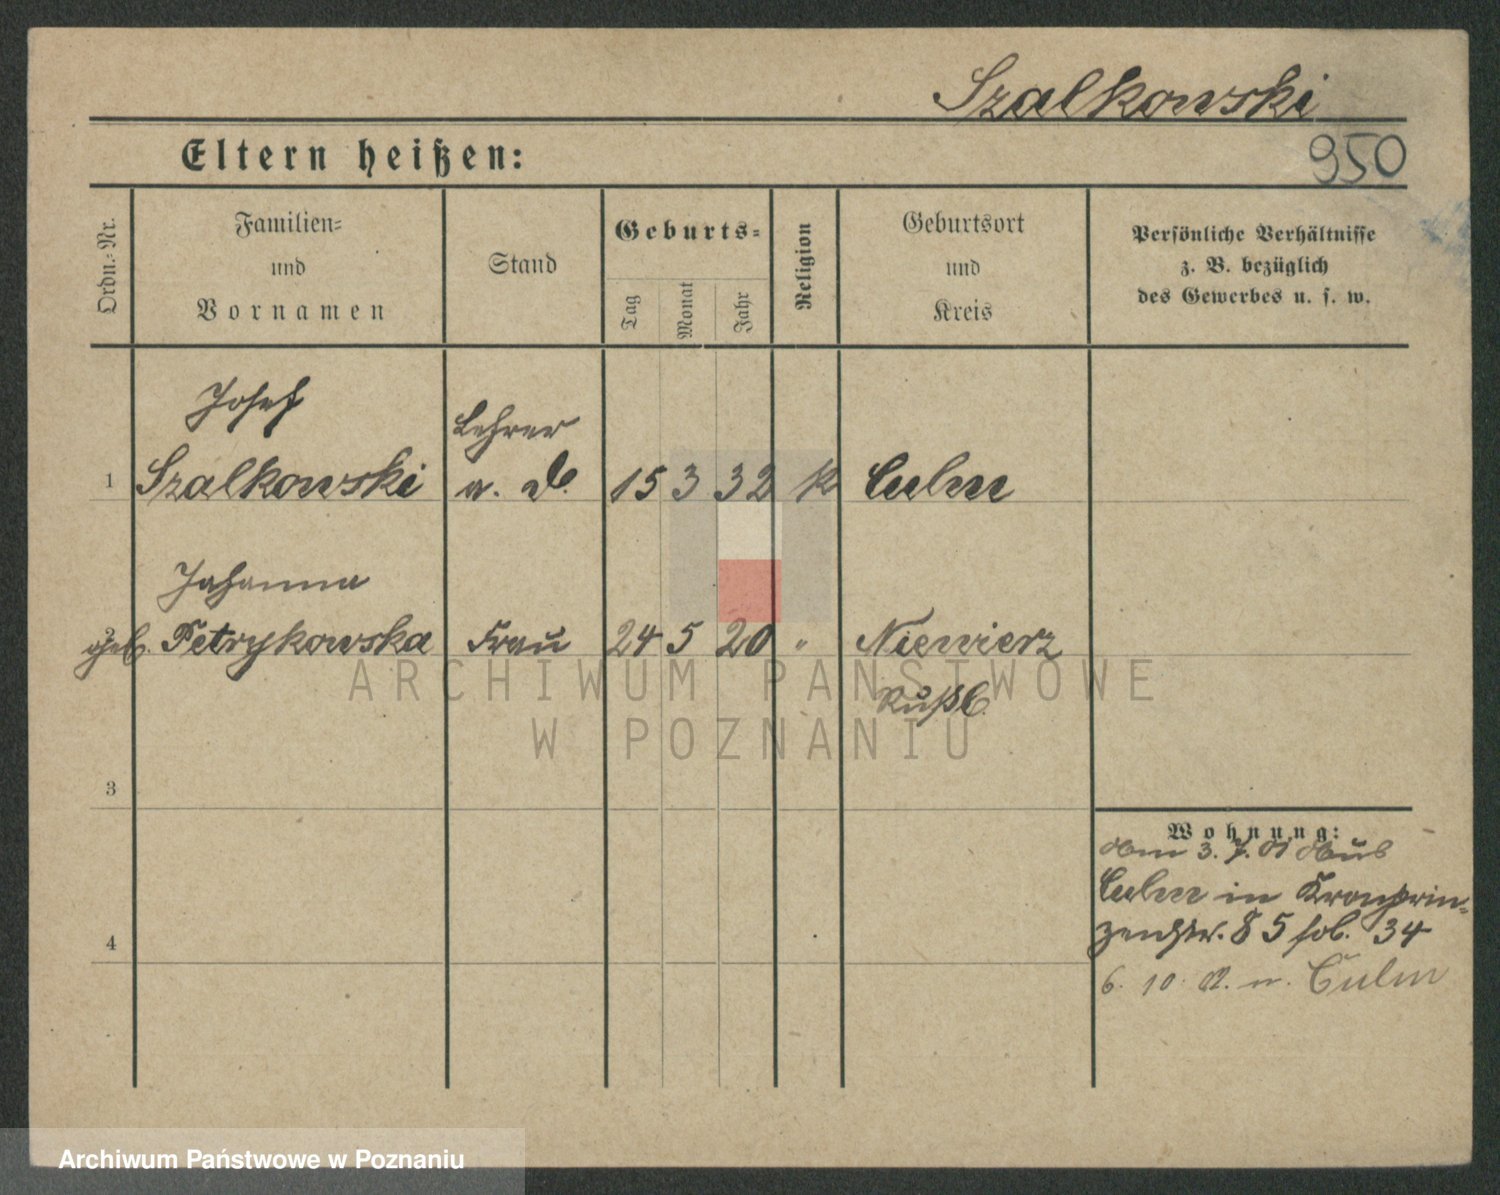 Szalkowski
950
Eltern heißen:
Ordn.-Nr.
Familien-
und
Vornamen
Stand
Geburts-
Tag
Monat
Jahr
Religion
Geburtsort
und
Kreis
Persönliche Verhältnisse
z. B. bezüglich
des Gewerbes u. s. w.
Josef
Lehrer
1 Szalkowski a. D. 15 3 32 K Culm
Johanna
2 geb. Petrykowska Frau 24 5 20 " Niewierz
Rußl.
ARCHIWUM PAŃSTWOWE
W POZNANIU
3
Wohnung:
3. 7. 01 aus
Culm in Kronprin-
zenstr. 85 34
4
6. 10. 02. n. Culm
Archiwum Państwowe w Poznaniu